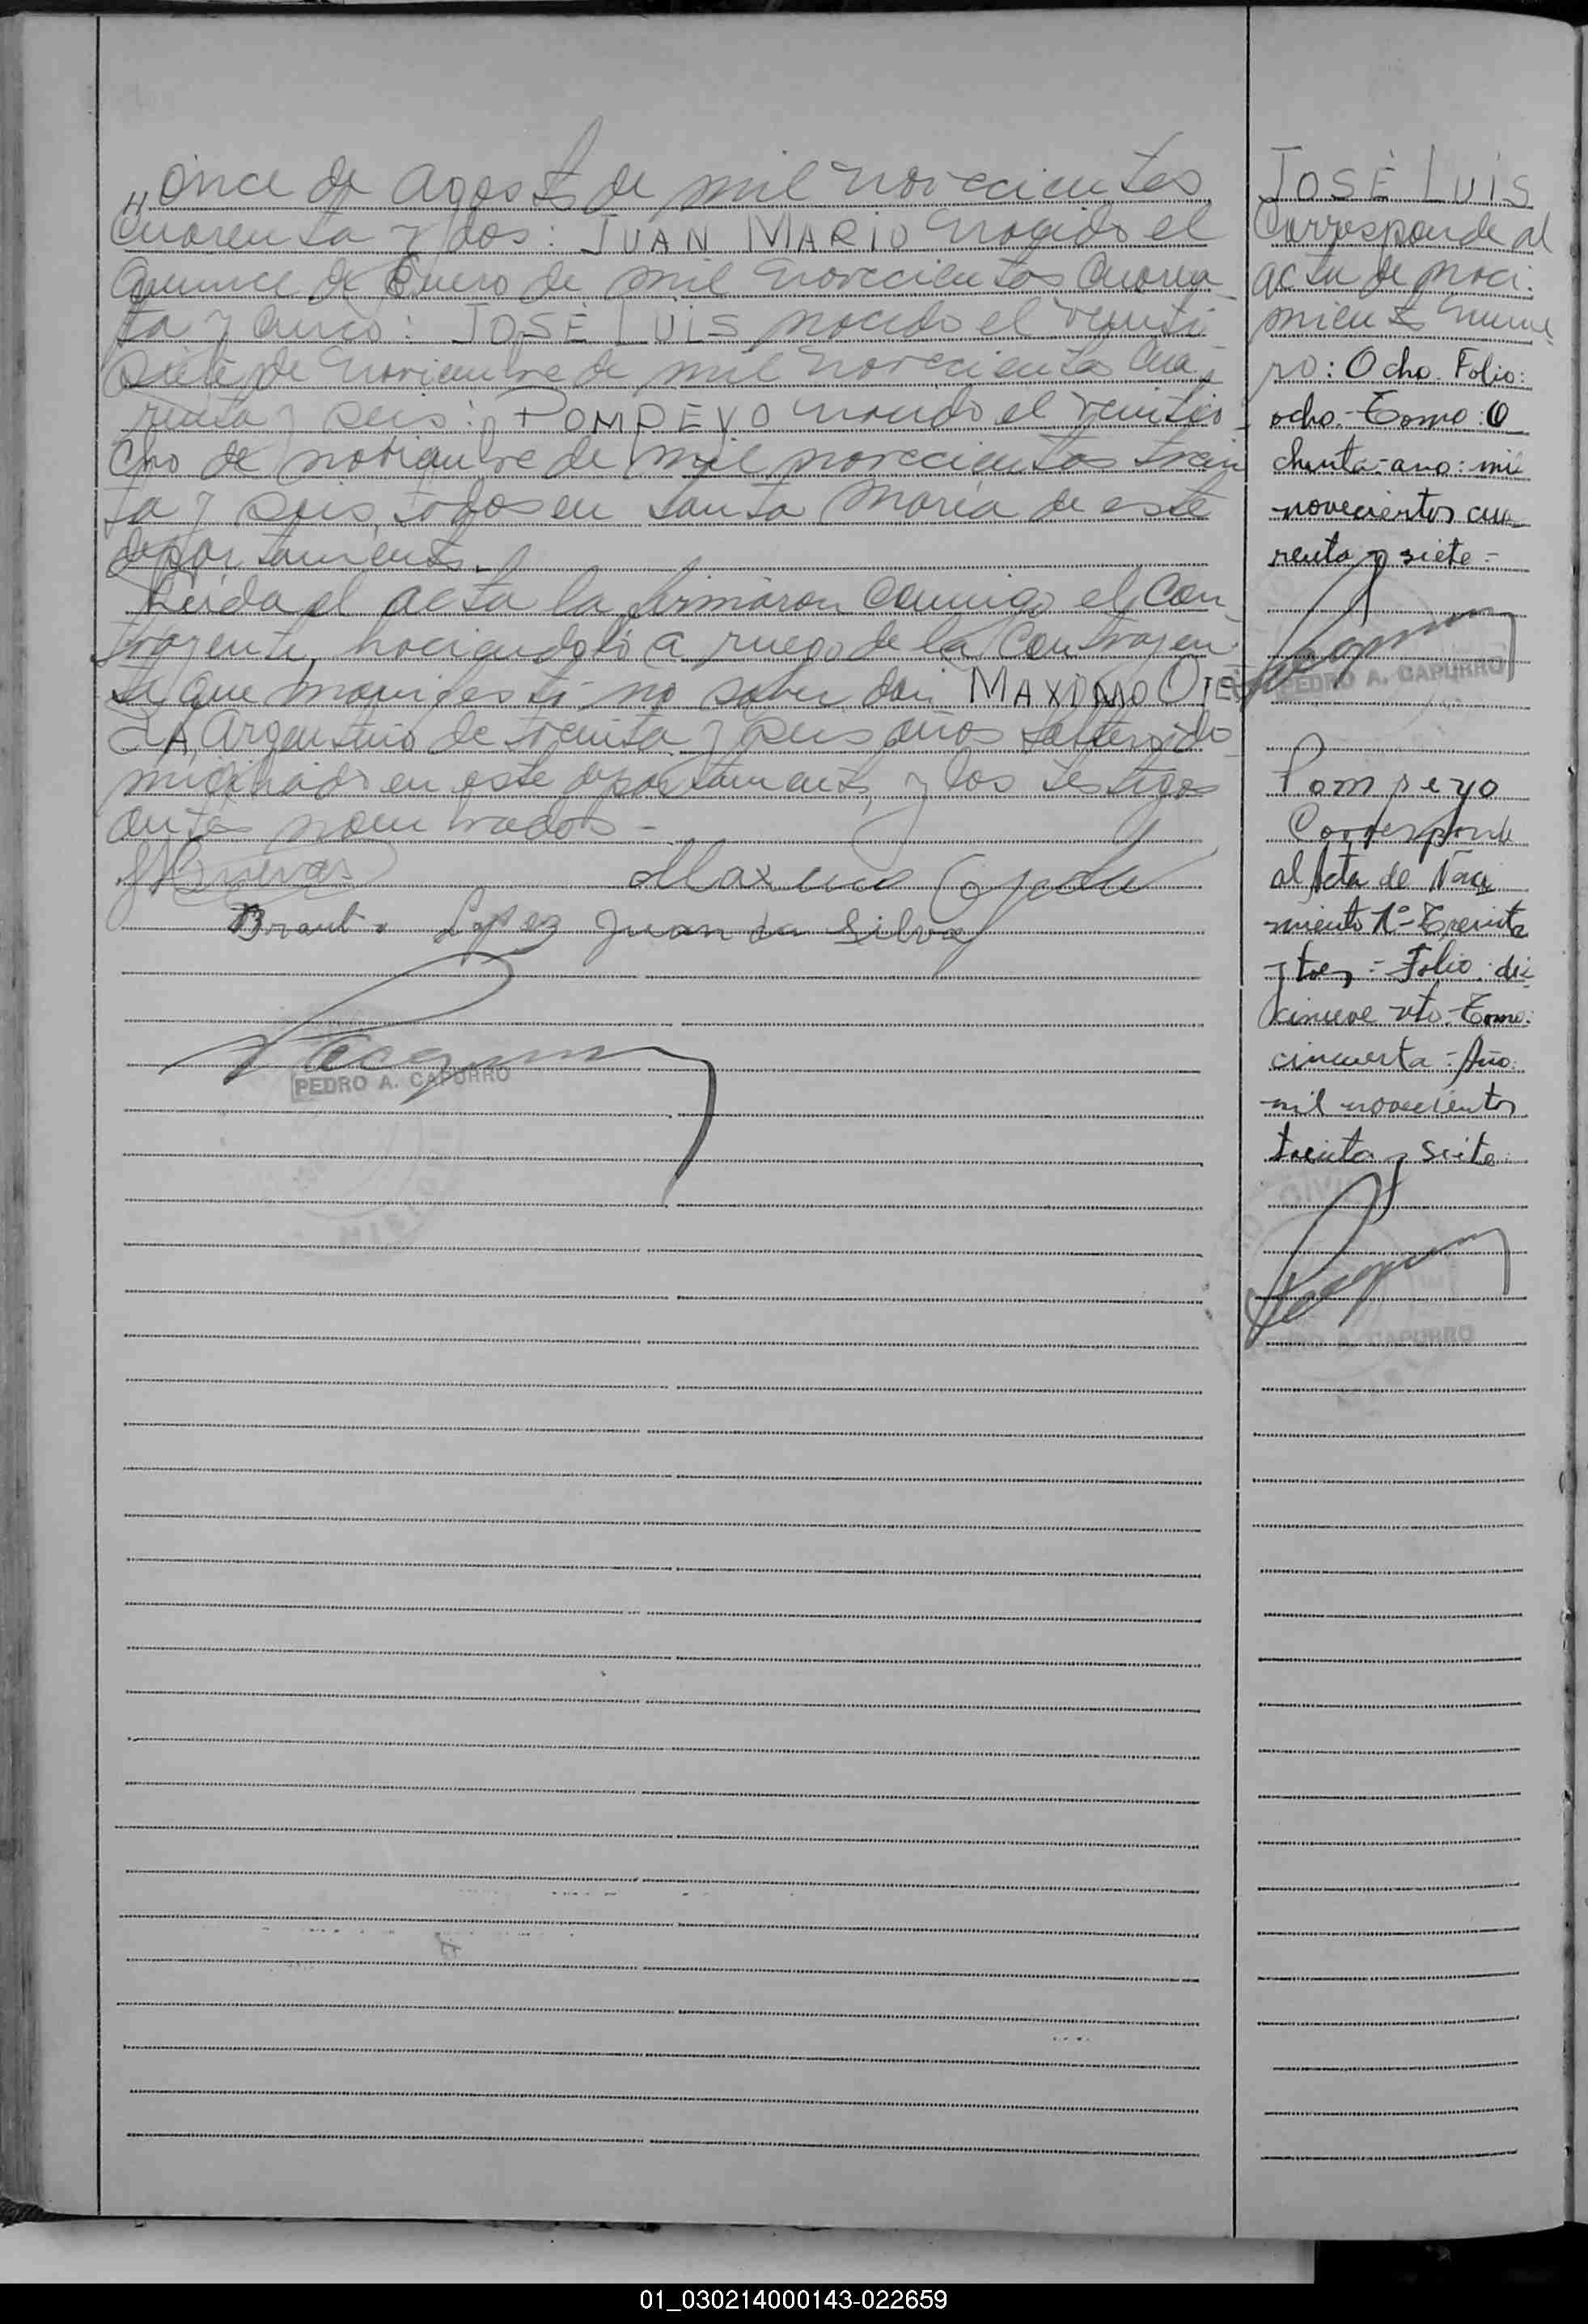 once de agosto de mil novecientos
cuarenta y dos: JUAN MARIO nacido el
quince de Enero de mil novecientos cuaren
ta y cinco: JOSÉ LUIS nacido el veinti
siete de noviembre de mil novecientos cua
renta y seis: POMPEYO nacido el veintio
cho de noviembre de mil novecientos trein
ta y seis, todos en Santa María de este
departamento.
Leida el acta la firmaron conmigo el con
trayente, haciendolo a ruego de la contrayen
te que manifestó no saber don MAXIMO OJE
DA, Argentino de treinta y seis años soltero do
miciliado en este departamento, y los testigos
antes nombrados.-
Maximo Ojeda
Braulio Lopez Juan da Silva
PEDRO A. CAPURRO
JOSÉ LUIS
Corresponde al
acta de naci-
miento núme
ro: Ocho. Folio:
ocho.- Tomo: O
chenta- ano: mil
novecientos cua
renta y siete -
PEDRO A. CAPURRO
Pompeyo
Corresponde
al Acta de Naci
miento Nº- Treinta
y tres - Folio: di
ecinueve vto- Tomo:
cincuenta - Año:
mil novecientos
treinta y siete.
PEDRO A. CAPURRO
01_030214000143-022659